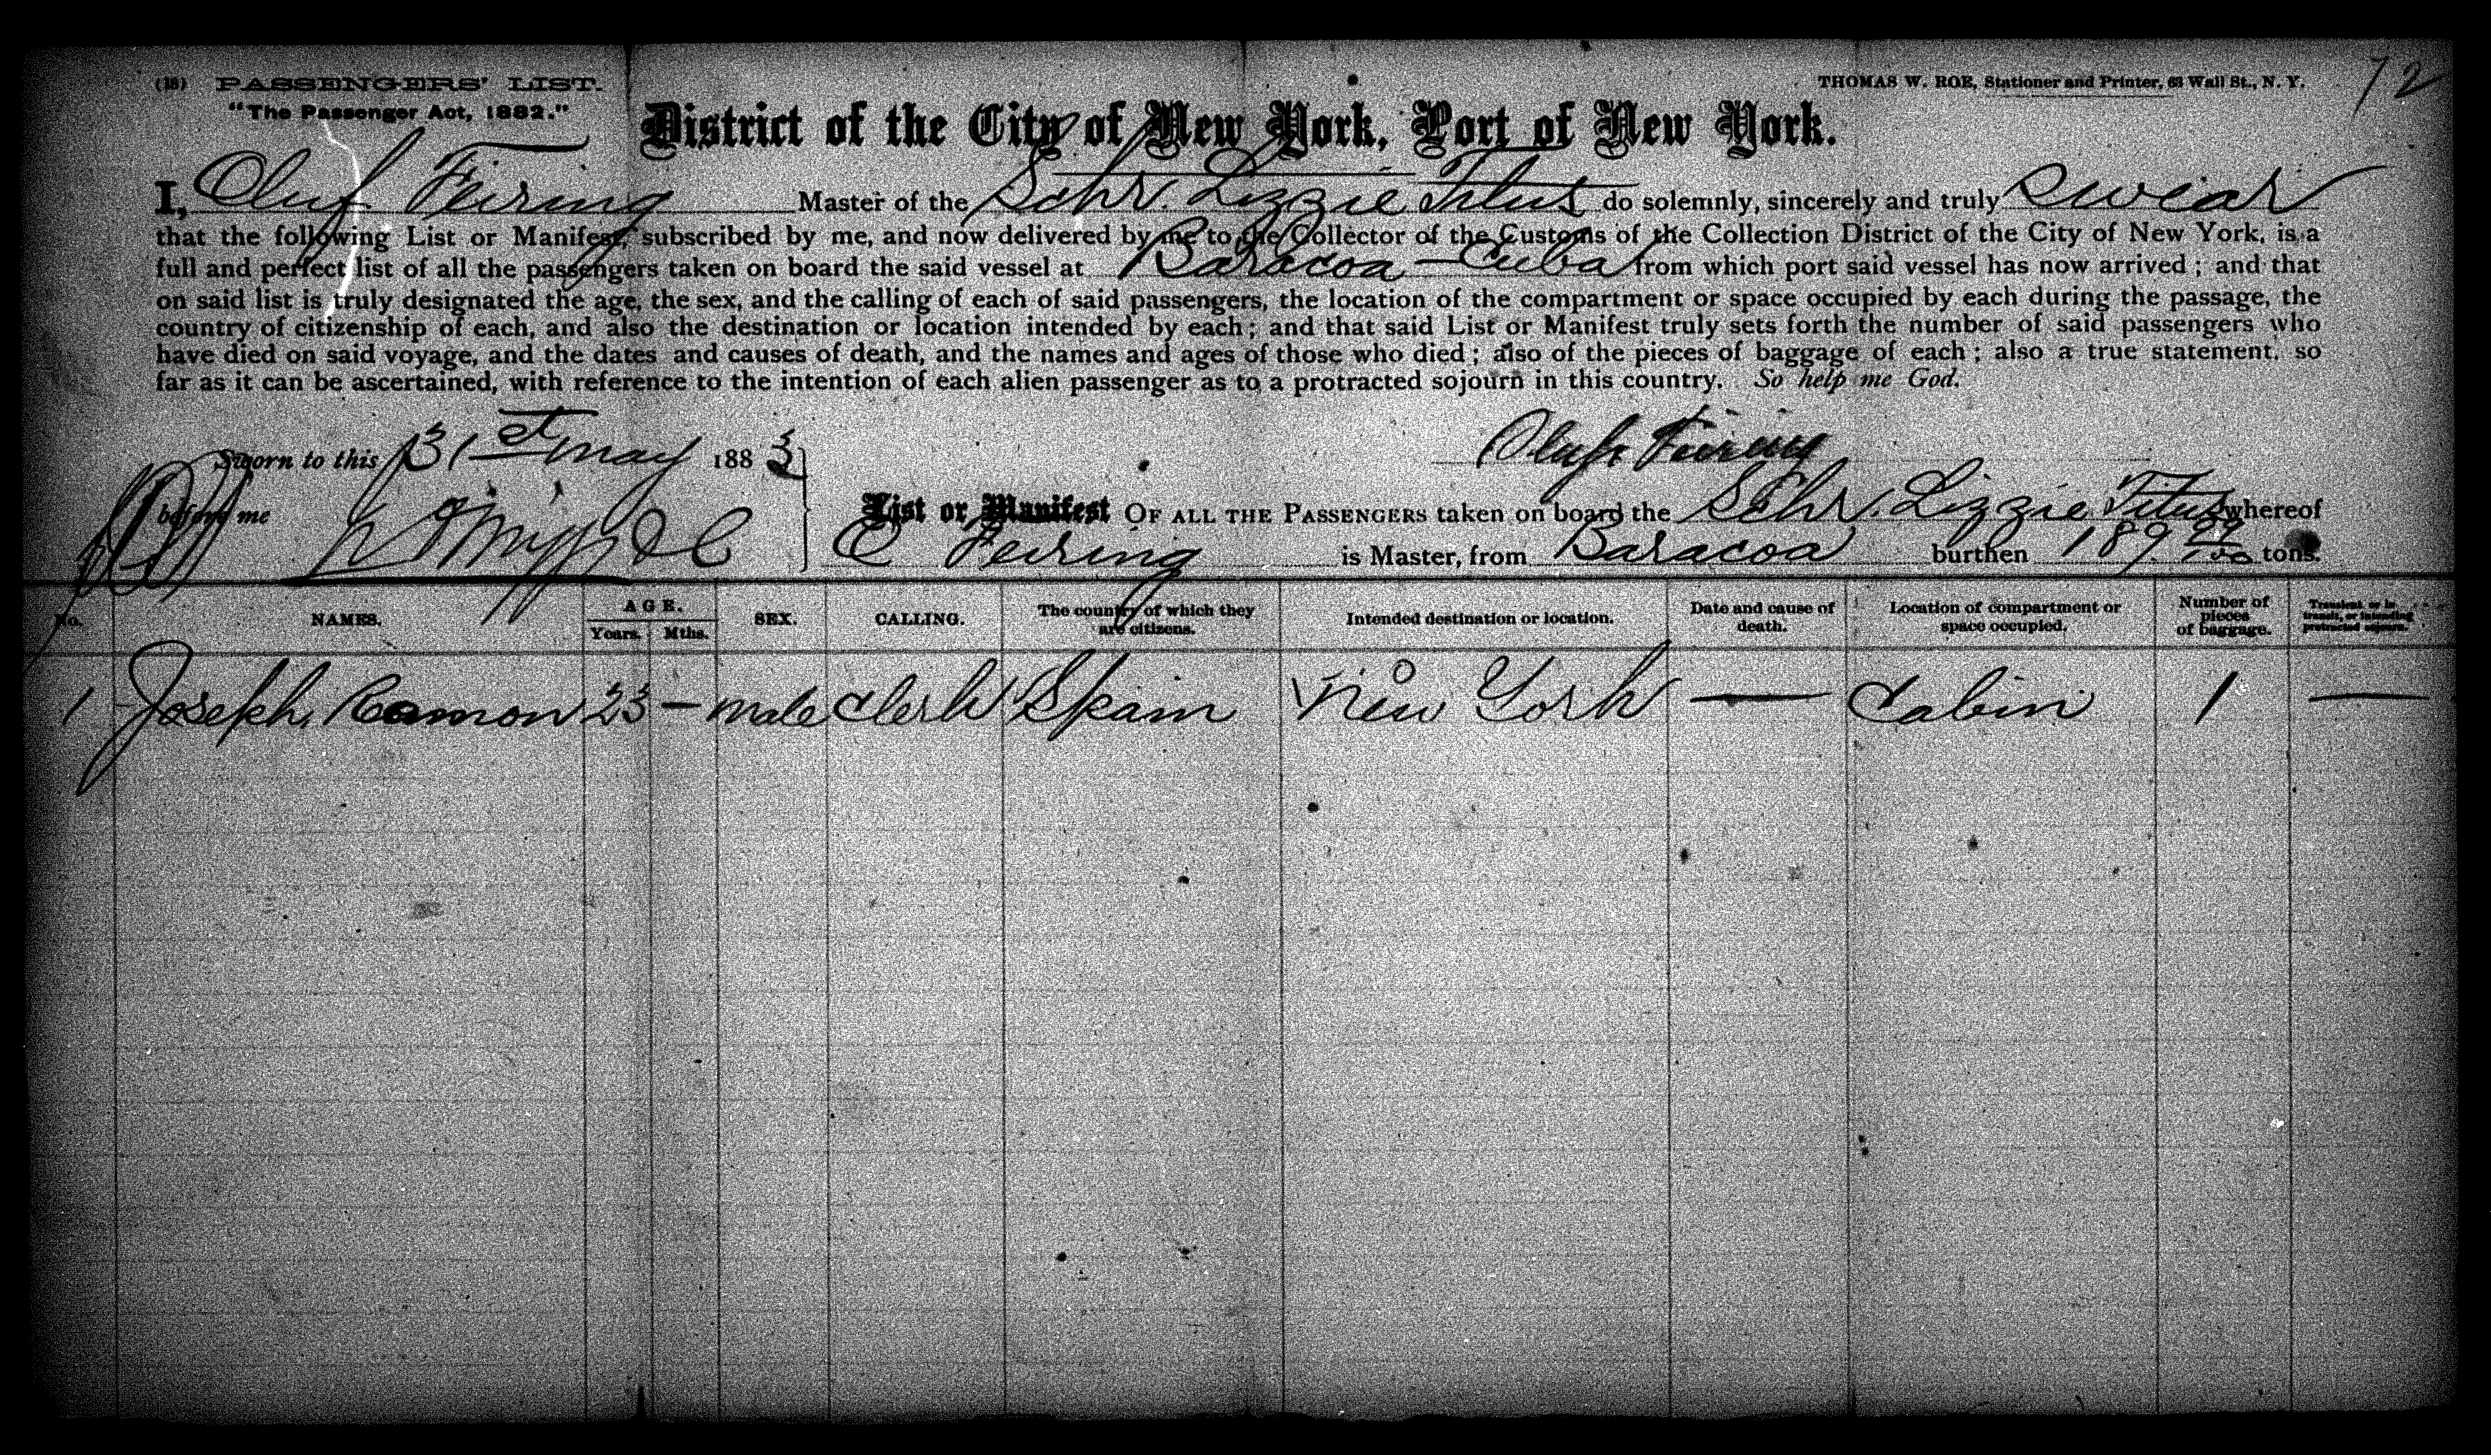 (18) PASSENGERS' LIST.
"The Passenger Act, 1882."
THOMAS W. ROE, Stationer and Printer, 63 Wall St., N. Y.
72
District of the City of New York, Port of New York.
I, Oluf Feiring Master of the Schr. Lizzie Titus do solemnly, sincerely and truly swear
that the following List or Manifest, subscribed by me, and now delivered by me to the Collector of the Customs of the Collection District of the City of New York, is a
full and perfect list of all the passengers taken on board the said vessel at Baracoa - Cuba from which port said vessel has now arrived; and that
on said list is truly designated the age, the sex, and the calling of each of said passengers, the location of the compartment or space occupied by each during the passage, the
country of citizenship of each, and also the destination or location intended by each; and that said List or Manifest truly sets forth the number of said passengers who
have died on said voyage, and the dates and causes of death, and the names and ages of those who died; also of the pieces of baggage of each; also a true statement, so
far as it can be ascertained, with reference to the intention of each alien passenger as to a protracted sojourn in this country. So help me God.
Sworn to this 31st May 1883
Oluf Feiring
before me
List or Manifest OF ALL THE PASSENGERS taken on board the Schr. Lizzie Titus whereof
O Feiring is Master, from Baracoa burthen 189 99/100 tons.
No. NAMES. AGE. Years. Mths. SEX. CALLING. The country of which they are citizens. Intended destination or location. Date and cause of death. Location of compartment or space occupied. Number of pieces of baggage. Transient, or in transit, or intending protracted sojourn.
1 Joseph Ramon 23 — male Clerk Spain New York — Cabin 1 —